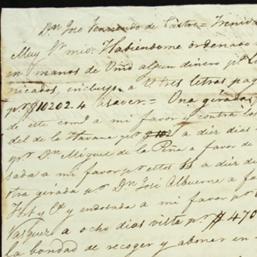 Dn José Fernando de Castro = Trinidad
Muy Sr mio: Habiendome ordenado
en manos de Vmd algun dinero pr
nicados, incluyo a U tres letras pag
pr $11202.4 a saver = Una girada
de este comd a mi favor y contra los
del de la Havana pr a diez dias
pr Dn Miguel de la Peña a favor de
sada a mi favor pr ellos a diez di
otra girada pr Dn José Albuerne a fa
Fort y Ca y endosada a mi favor p
Vasquez a ocho dias vista pr $470
la bondad de recoger y abonar en